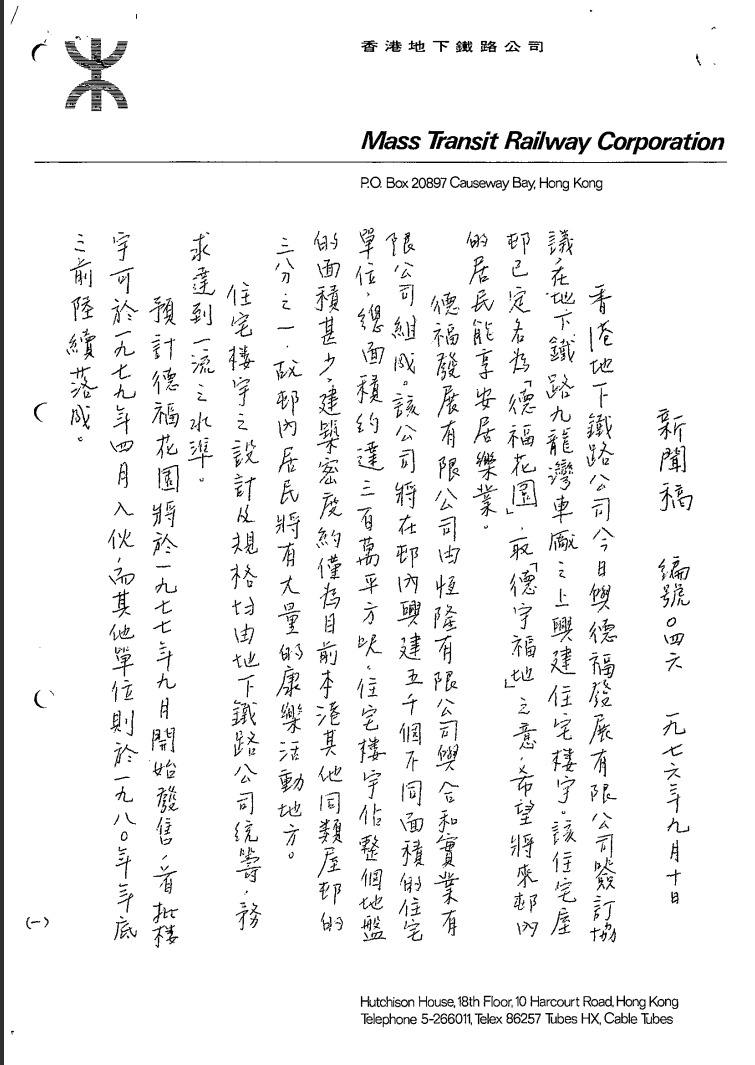 香港地下鐵路公司
Mass Transit Railway Corporation
P.O. Box 20897 Causeway Bay, Hong Kong
新聞稿 編號〇四六 一九七六年九月十日
香港地下鐵路公司今日與德福發展有限公司簽訂協
議,在地下鐵路九龍灣車廠之上興建住宅樓宇。該住宅屋
邨已定名為「德福花園」,取「德宇福地」之意,希望將來邨內
的居民能享安居樂業。
德福發展有限公司由恒隆有限公司與合和實業有
限公司組成。該公司將在邨內興建五千個不同面積的住宅
單位,總面積約達三百萬平方呎,住宅樓宇佔整個地盤
的面積甚少,建築密度約僅為目前本港其他同類屋邨的
三分之一,故邨內居民將有大量的康樂活動地方。
住宅樓宇之設計及規格均由地下鐵路公司統籌,務
求達到一流之水準。
預計德福花園將於一九七七年九月開始發售,首批樓
宇可於一九七九年四月入伙,而其他單位則於一九八〇年年底
之前陸續落成。
(一)
Hutchison House, 18th Floor, 10 Harcourt Road, Hong Kong
Telephone 5-266011, Telex 86257 Tubes HX, Cable Tubes